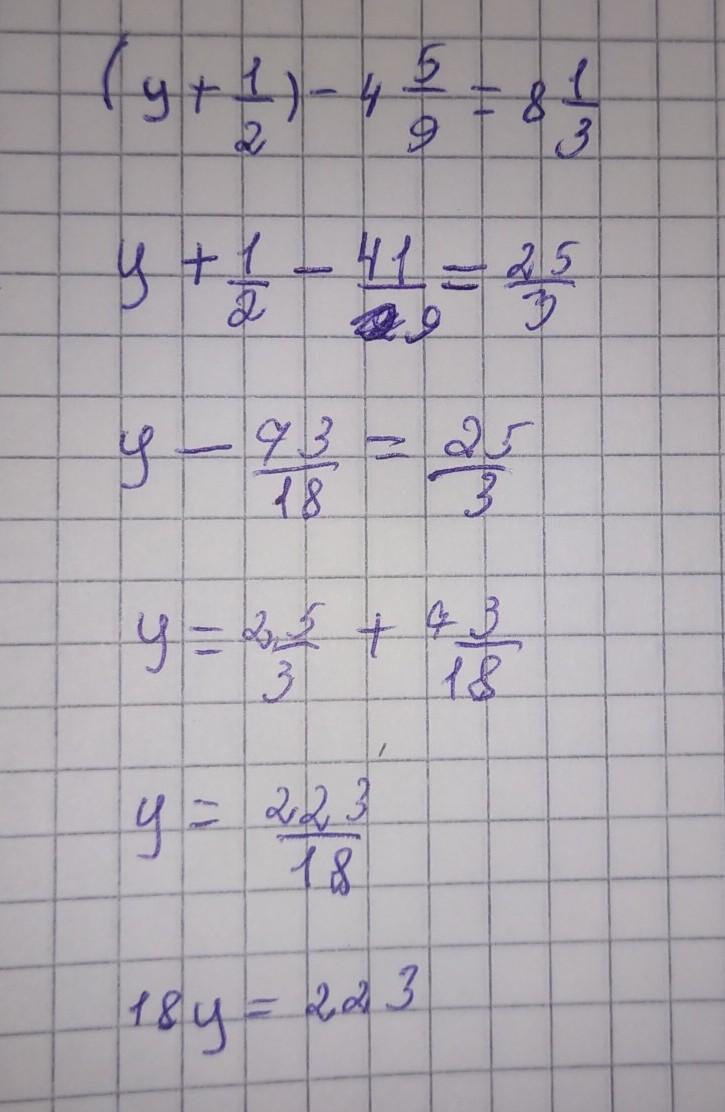 (y + 1/2) - 4 5/9 = 8 1/3
y + 1/2 - 41/9 = 25/3
y - 73/18 = 25/3
y = 25/3 + 73/18
y = 223/18
18y = 223